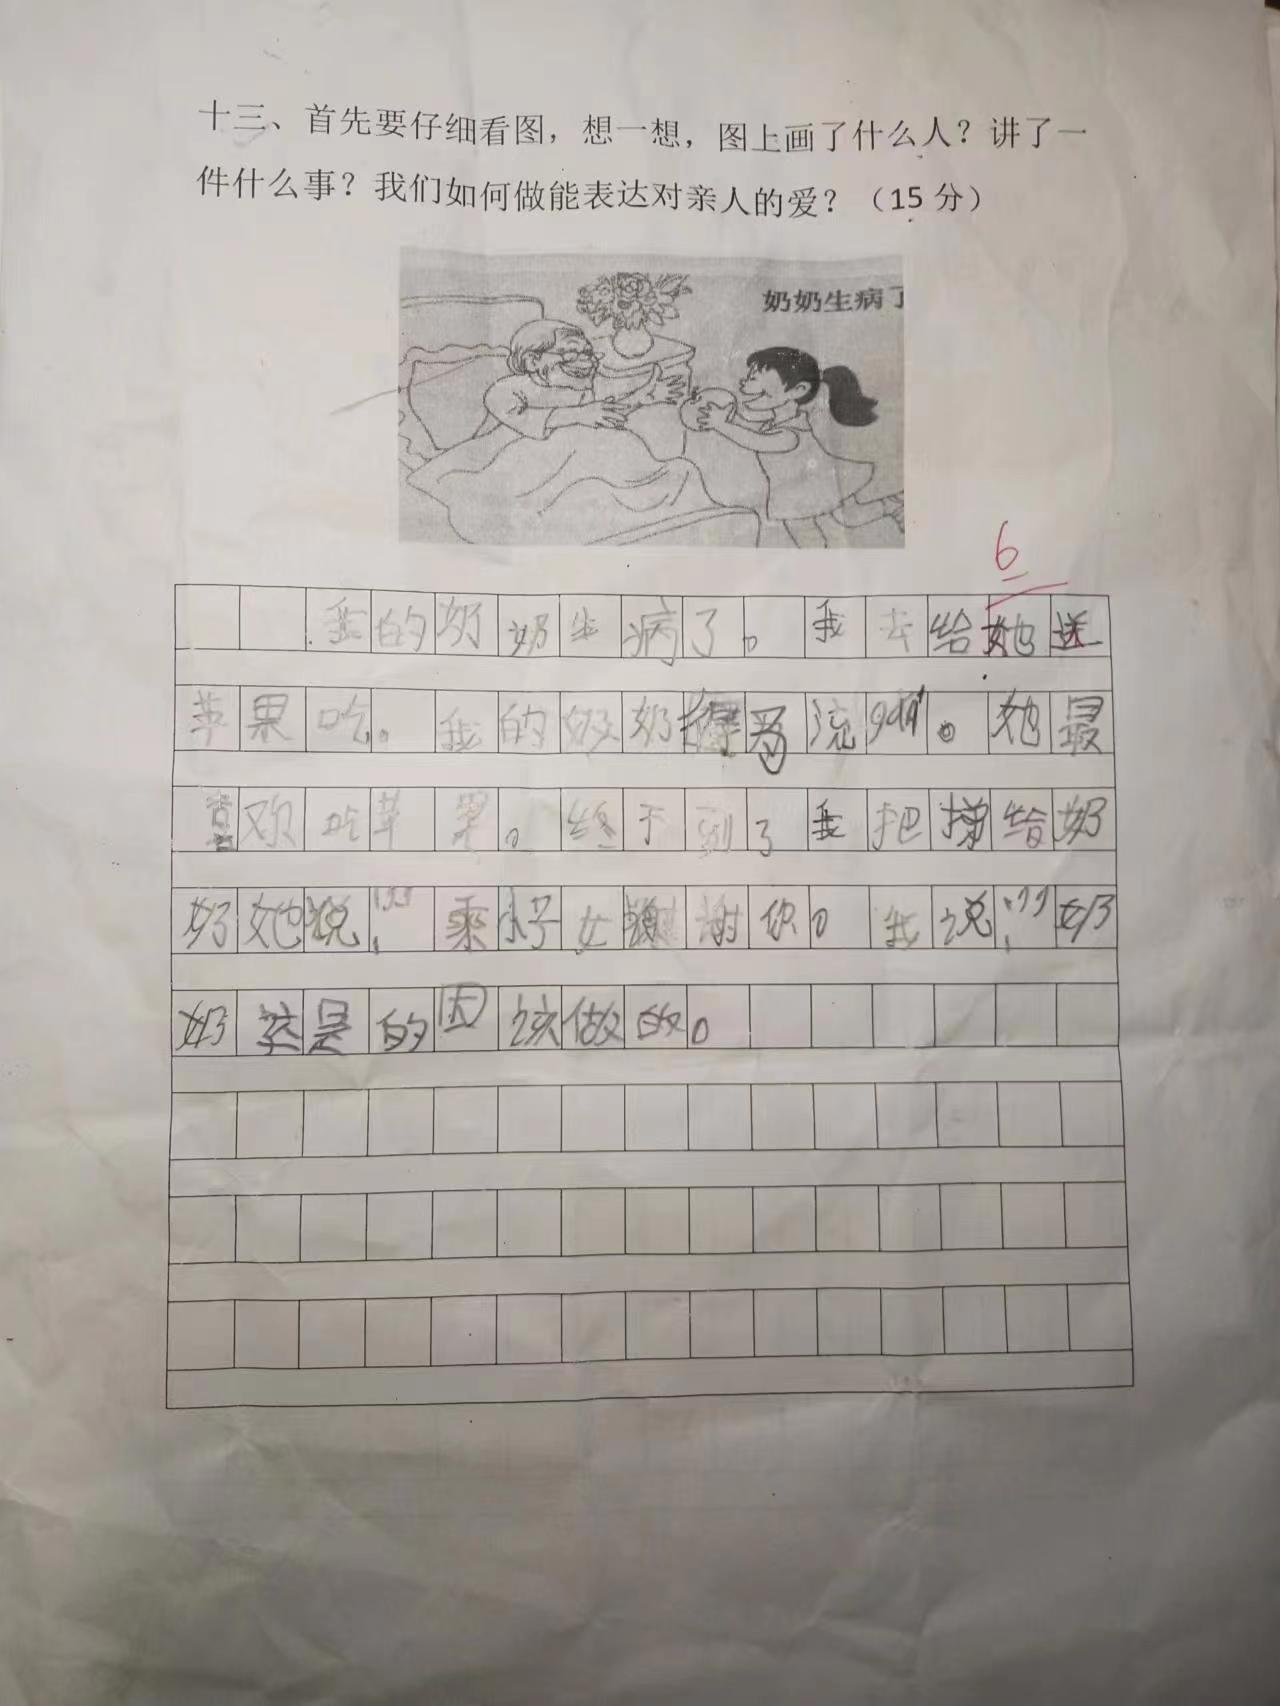 十三、首先要仔细看图，想一想，图上画了什么人？讲了一
件什么事？我们如何做能表达对亲人的爱？（15 分）
奶奶生病了
6
我的奶奶生病了。我去给她送
苹果吃。我的奶奶得了流gan。她最
喜欢吃苹果。终于到了我把 给奶
奶她说:"" 乖小子女谢谢你。我说:""奶
奶这是的因该做的。